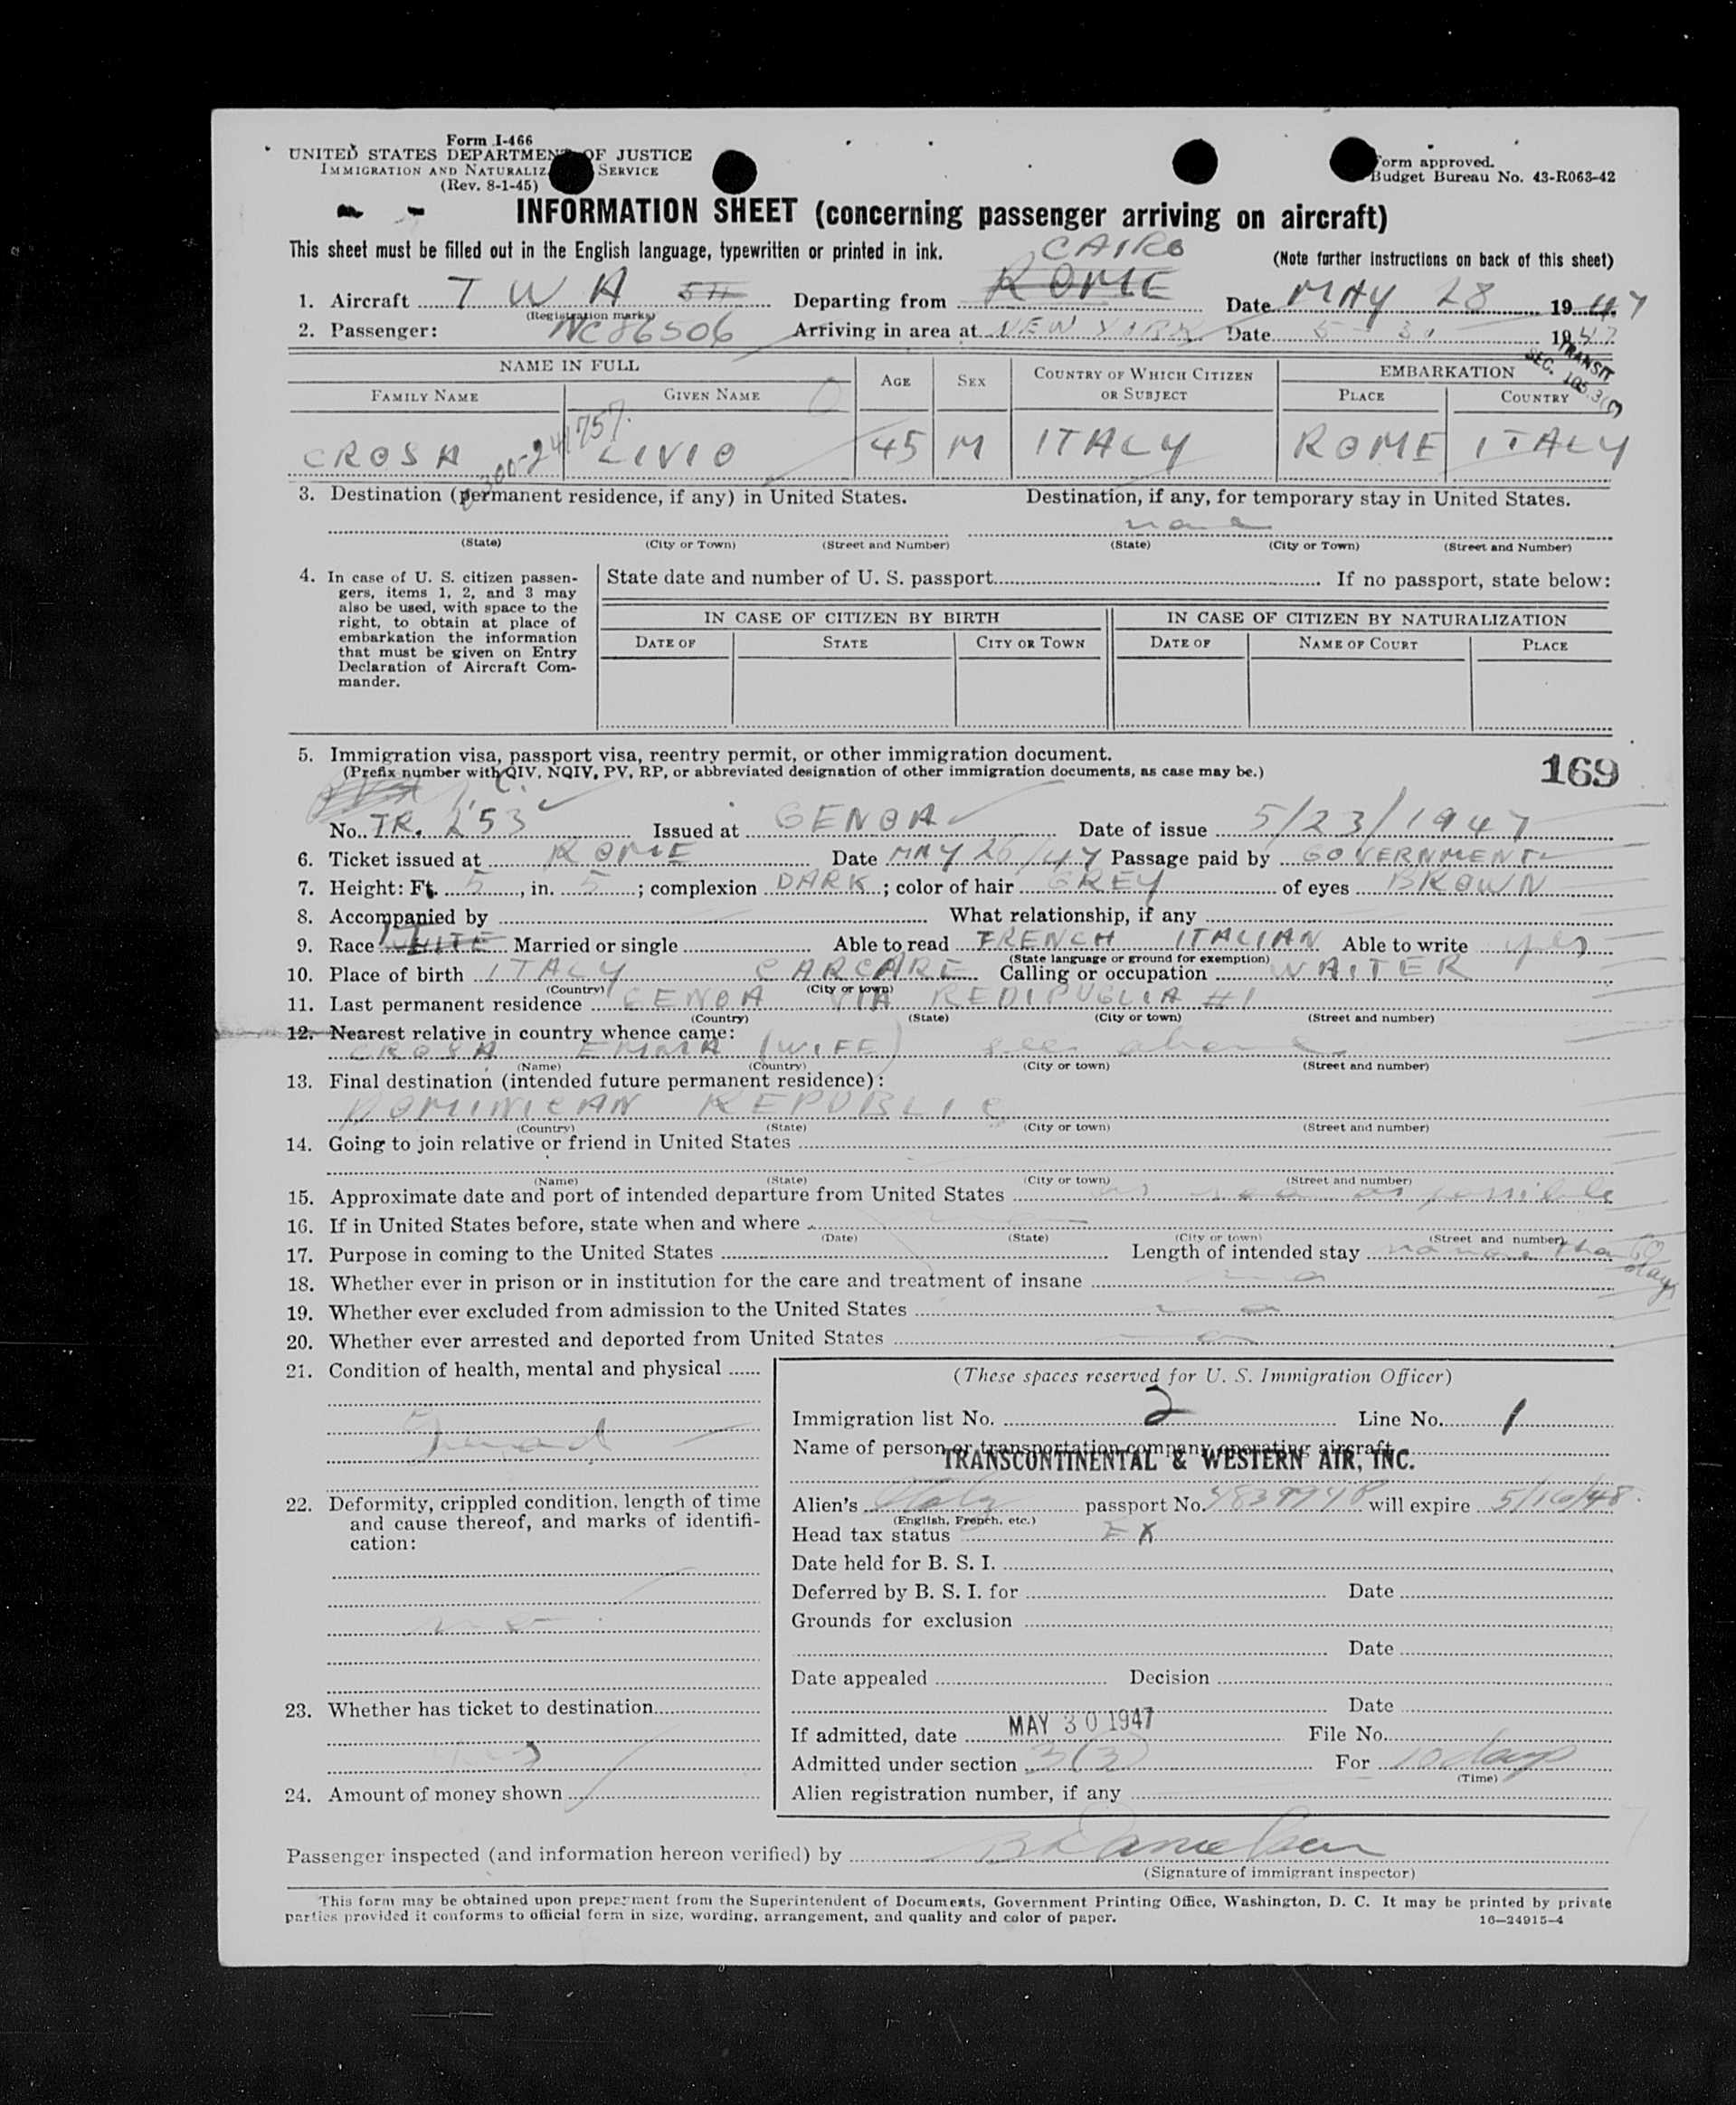 Form I-466
UNITED STATES DEPARTMENT OF JUSTICE
IMMIGRATION AND NATURALIZ SERVICE
(Rev. 8-1-45)
Form approved.
Budget Bureau No. 43-R063-42
INFORMATION SHEET (concerning passenger arriving on aircraft)
This sheet must be filled out in the English language, typewritten or printed in ink.
(Note further instructions on back of this sheet)
CAIRO
1. Aircraft TWA Departing from ROME Date MAY 28 1947
(Registration marks)
2. Passenger: NC86506 Arriving in area at NEW YORK Date 5-30 1947
TRANSIT
SEC. 105.3(7)
NAME IN FULL
FAMILY NAME GIVEN NAME AGE SEX COUNTRY OF WHICH CITIZEN OR SUBJECT EMBARKATION PLACE COUNTRY
CROSA LIVIO 45 M ITALY ROME ITALY
3. Destination (permanent residence, if any) in United States. Destination, if any, for temporary stay in United States.
none
(State) (City or Town) (Street and Number) (State) (City or Town) (Street and Number)
4. In case of U. S. citizen passen-
gers, items 1, 2, and 3 may
also be used, with space to the
right, to obtain at place of
embarkation the information
that must be given on Entry
Declaration of Aircraft Com-
mander.
State date and number of U. S. passport If no passport, state below:
IN CASE OF CITIZEN BY BIRTH IN CASE OF CITIZEN BY NATURALIZATION
DATE OF STATE CITY OR TOWN DATE OF NAME OF COURT PLACE
5. Immigration visa, passport visa, reentry permit, or other immigration document.
(Prefix number with QIV, NQIV, PV, RP, or abbreviated designation of other immigration documents, as case may be.)
169
No. TR. 253 Issued at GENOA Date of issue 5/23/1947
6. Ticket issued at ROME Date MAY 26/47 Passage paid by GOVERNMENT
7. Height: Ft. 5, in. 5; complexion DARK; color of hair GREY of eyes BROWN
8. Accompanied by What relationship, if any
9. Race WHITE Married or single Able to read FRENCH ITALIAN Able to write yes
(State language or ground for exemption)
10. Place of birth ITALY CARCARE Calling or occupation WAITER
(Country) (City or town)
11. Last permanent residence GENOA VIA REDIPUGLIA #1
(Country) (State) (City or town) (Street and number)
12. Nearest relative in country whence came:
CROSA EMMA (WIFE) see above
(Name) (Country) (City or town) (Street and number)
13. Final destination (intended future permanent residence):
DOMINICAN REPUBLIC
(Country) (State) (City or town) (Street and number)
14. Going to join relative or friend in United States
(Name) (State) (City or town) (Street and number)
15. Approximate date and port of intended departure from United States as soon as possible
16. If in United States before, state when and where
(Date) (State) (City or town) (Street and number)
17. Purpose in coming to the United States Length of intended stay no more than 60 days
18. Whether ever in prison or in institution for the care and treatment of insane no
19. Whether ever excluded from admission to the United States no
20. Whether ever arrested and deported from United States no
21. Condition of health, mental and physical
good
22. Deformity, crippled condition, length of time
and cause thereof, and marks of identifi-
cation:
no
23. Whether has ticket to destination
yes
24. Amount of money shown
(These spaces reserved for U. S. Immigration Officer)
Immigration list No. 2 Line No. 1
Name of person or transportation company operating aircraft
TRANSCONTINENTAL & WESTERN AIR, INC.
Alien's Italy passport No. will expire 5/16/48
(English, French, etc.)
Head tax status EX
Date held for B. S. I.
Deferred by B. S. I. for Date
Grounds for exclusion
Date
Date appealed Decision
Date
If admitted, date MAY 30 1947 File No.
Admitted under section 3(3) For 10 days
(Time)
Alien registration number, if any
Passenger inspected (and information hereon verified) by
(Signature of immigrant inspector)
This form may be obtained upon prepayment from the Superintendent of Documents, Government Printing Office, Washington, D. C. It may be printed by private
parties provided it conforms to official form in size, wording, arrangement, and quality and color of paper.
16—24915-4